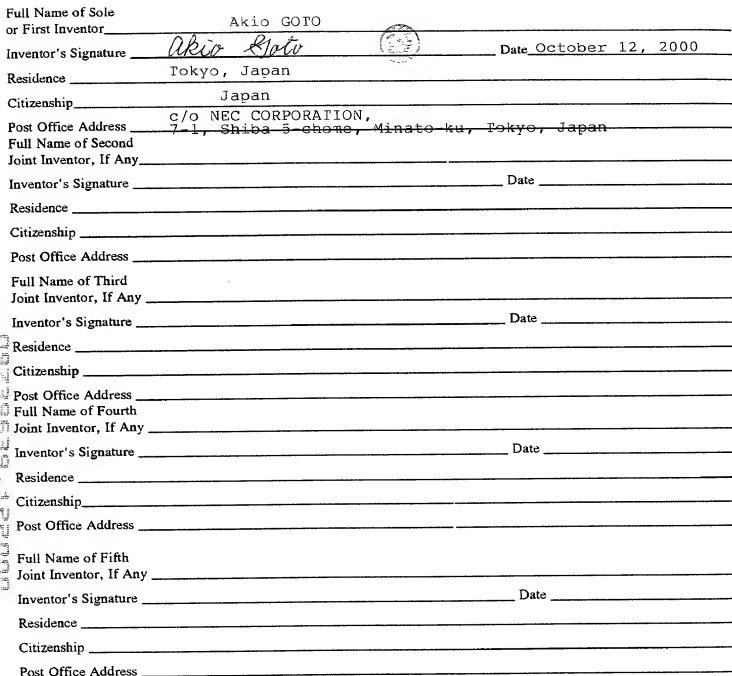 Full Name of Sole
or First Inventor Akio GOTO
Inventor's Signature Akio Goto Date October 12, 2000
Residence Tokyo, Japan
Citizenship Japan
c/o NEC CORPORATION,
Post Office Address 7-1, Shiba 5-chome, Minato-ku, Tokyo, Japan
Full Name of Second
Joint Inventor, If Any
Inventor's Signature Date
Residence
Citizenship
Post Office Address
Full Name of Third
Joint Inventor, If Any
Inventor's Signature Date
Residence
Citizenship
Post Office Address
Full Name of Fourth
Joint Inventor, If Any
Inventor's Signature Date
Residence
Citizenship
Post Office Address
Full Name of Fifth
Joint Inventor, If Any
Inventor's Signature Date
Residence
Citizenship
Post Office Address